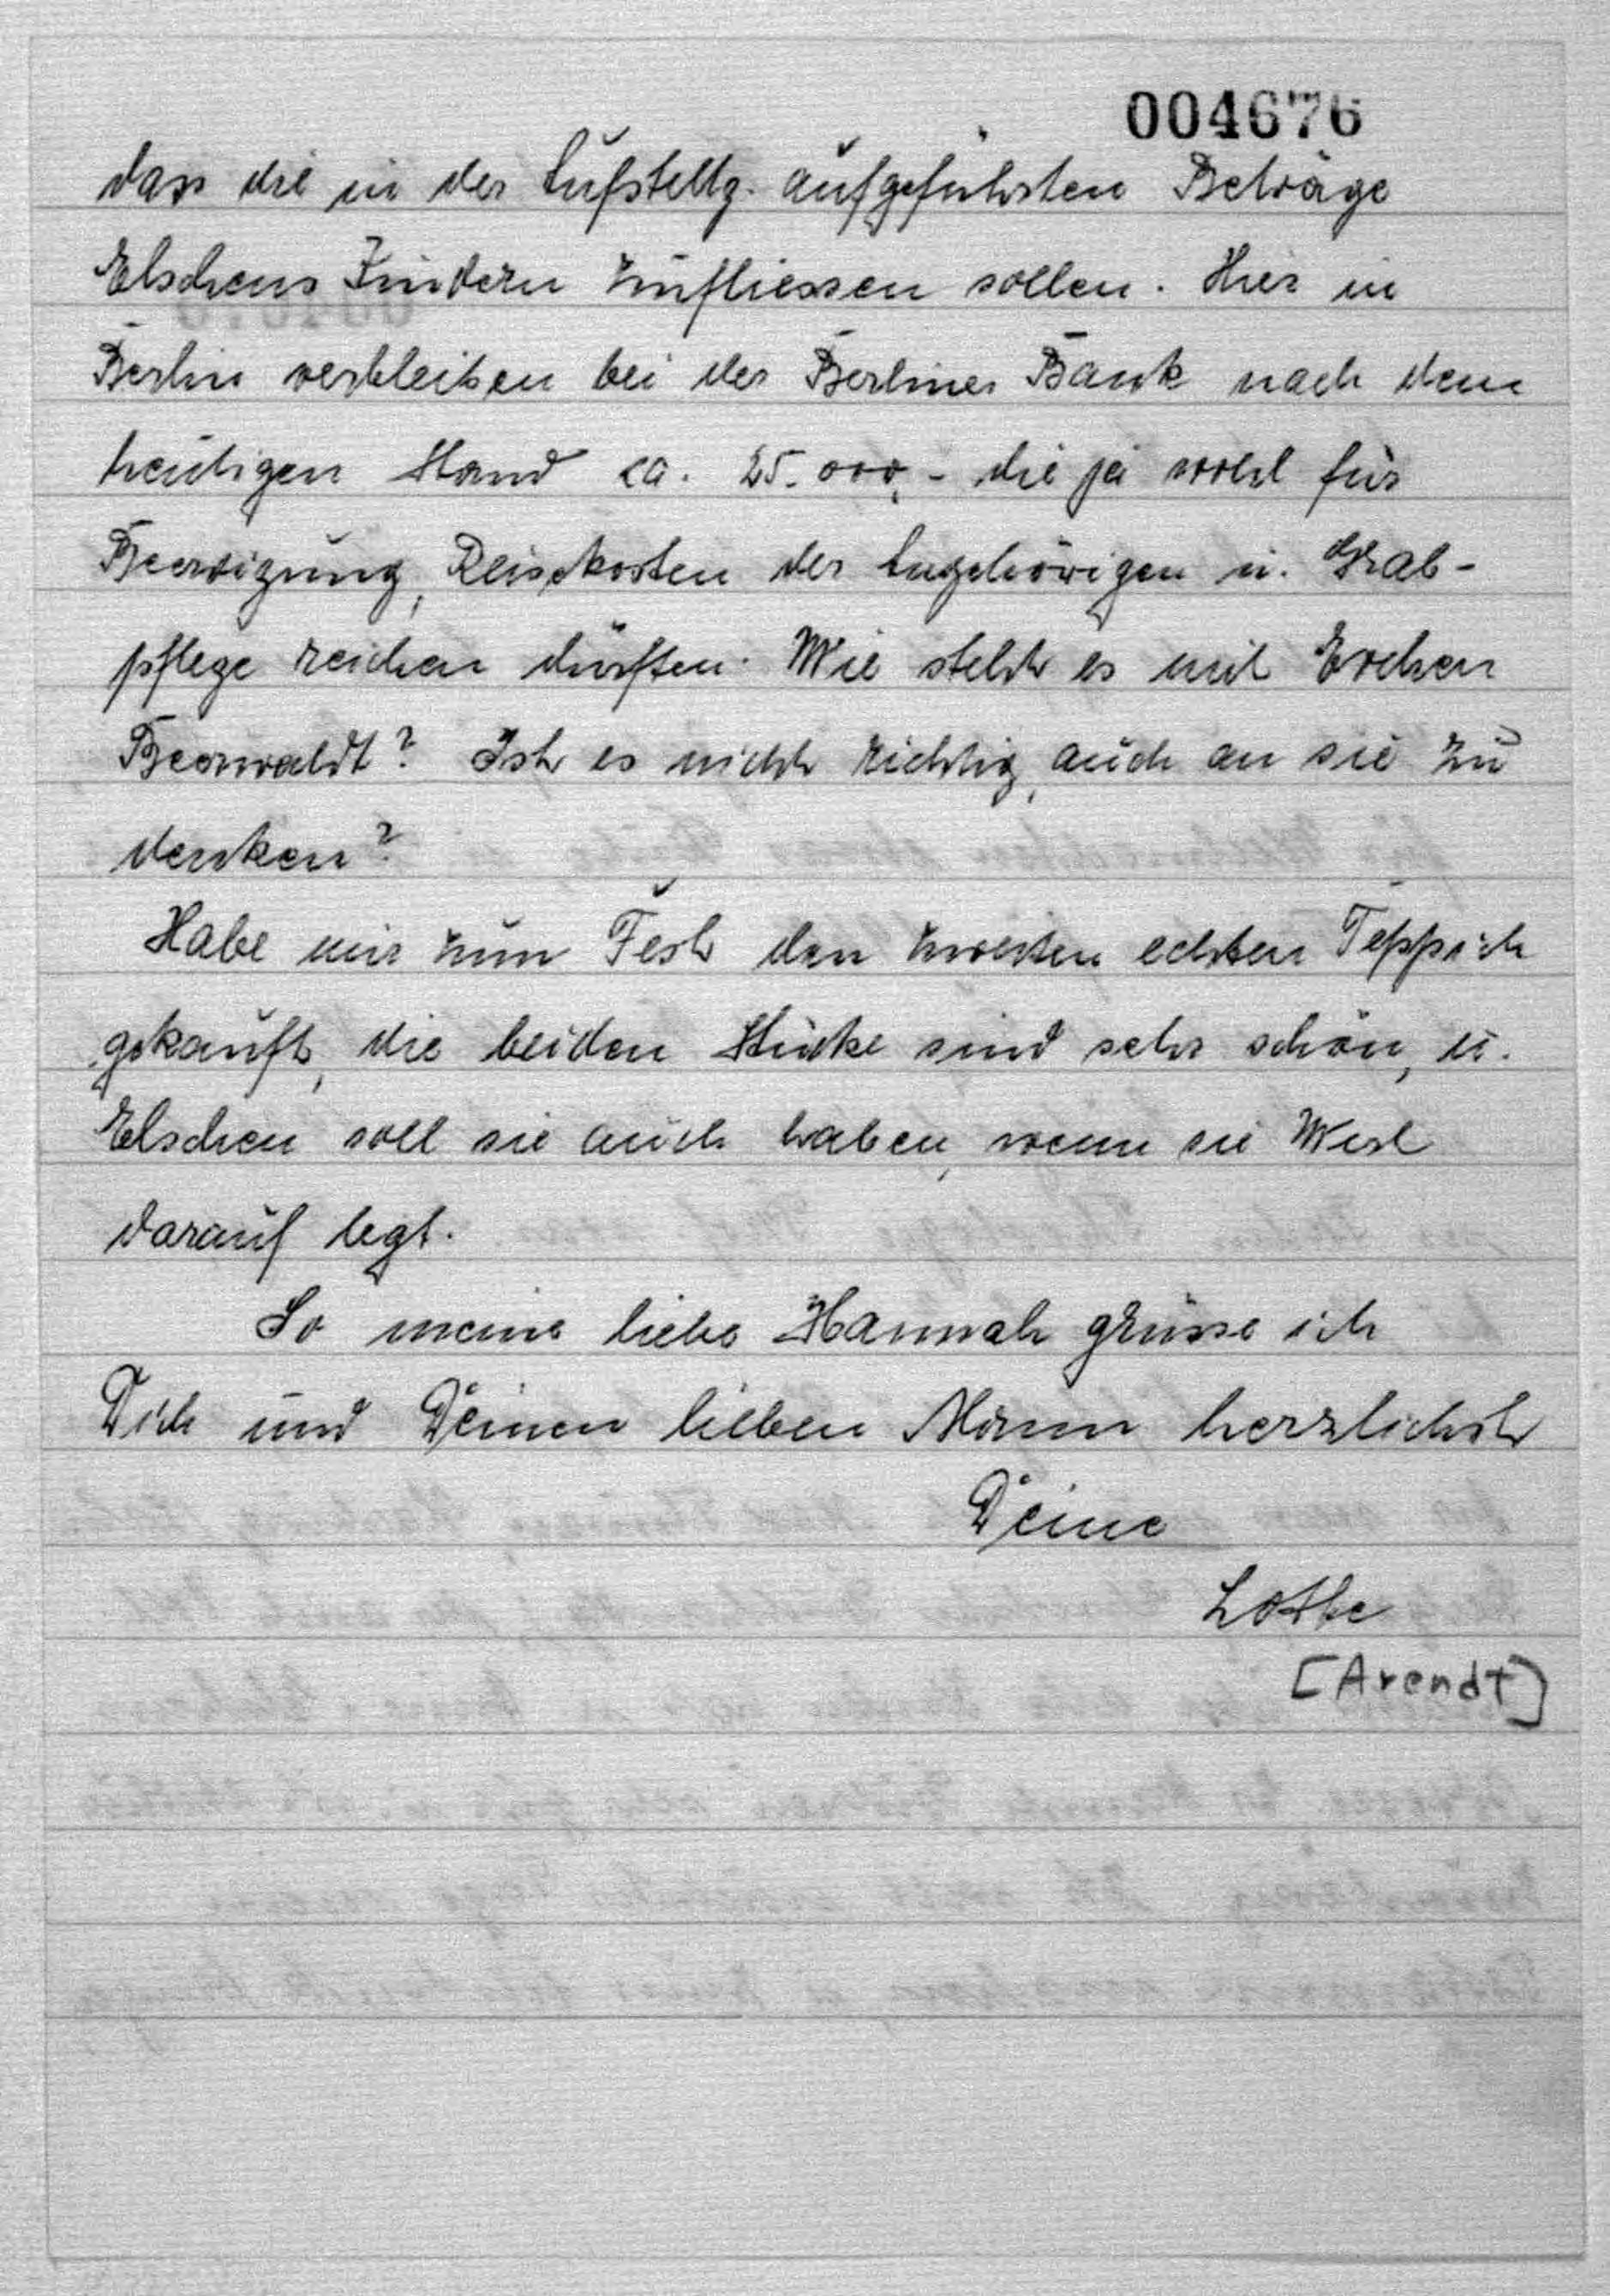 004676
dass die in der Aufstellg. aufgeführten Beträge
Elschens Kindern zufliessen sollen. Hier in
Berlin verbleiben bei der Berliner Bank nach dem
heutigen Stand ca. 25.000,- die ja wohl für
Beerdigung, Reisekosten der Angehörigen u. Grab-
pflege reichen dürften. Wie steht es mit Evchen
Beerwaldt? Ist es nicht richtig, auch an sie zu
denken?
Habe mir zum Fest den zweiten echten Teppich
gekauft, die beiden Stücke sind sehr schön, u.
Elschen soll sie auch haben, wenn sie Wert
darauf legt.
So meine liebe Hannah grüsse ich
Dich und Deinen lieben Mann herzlichst
Deine
Lotte
[Arendt]